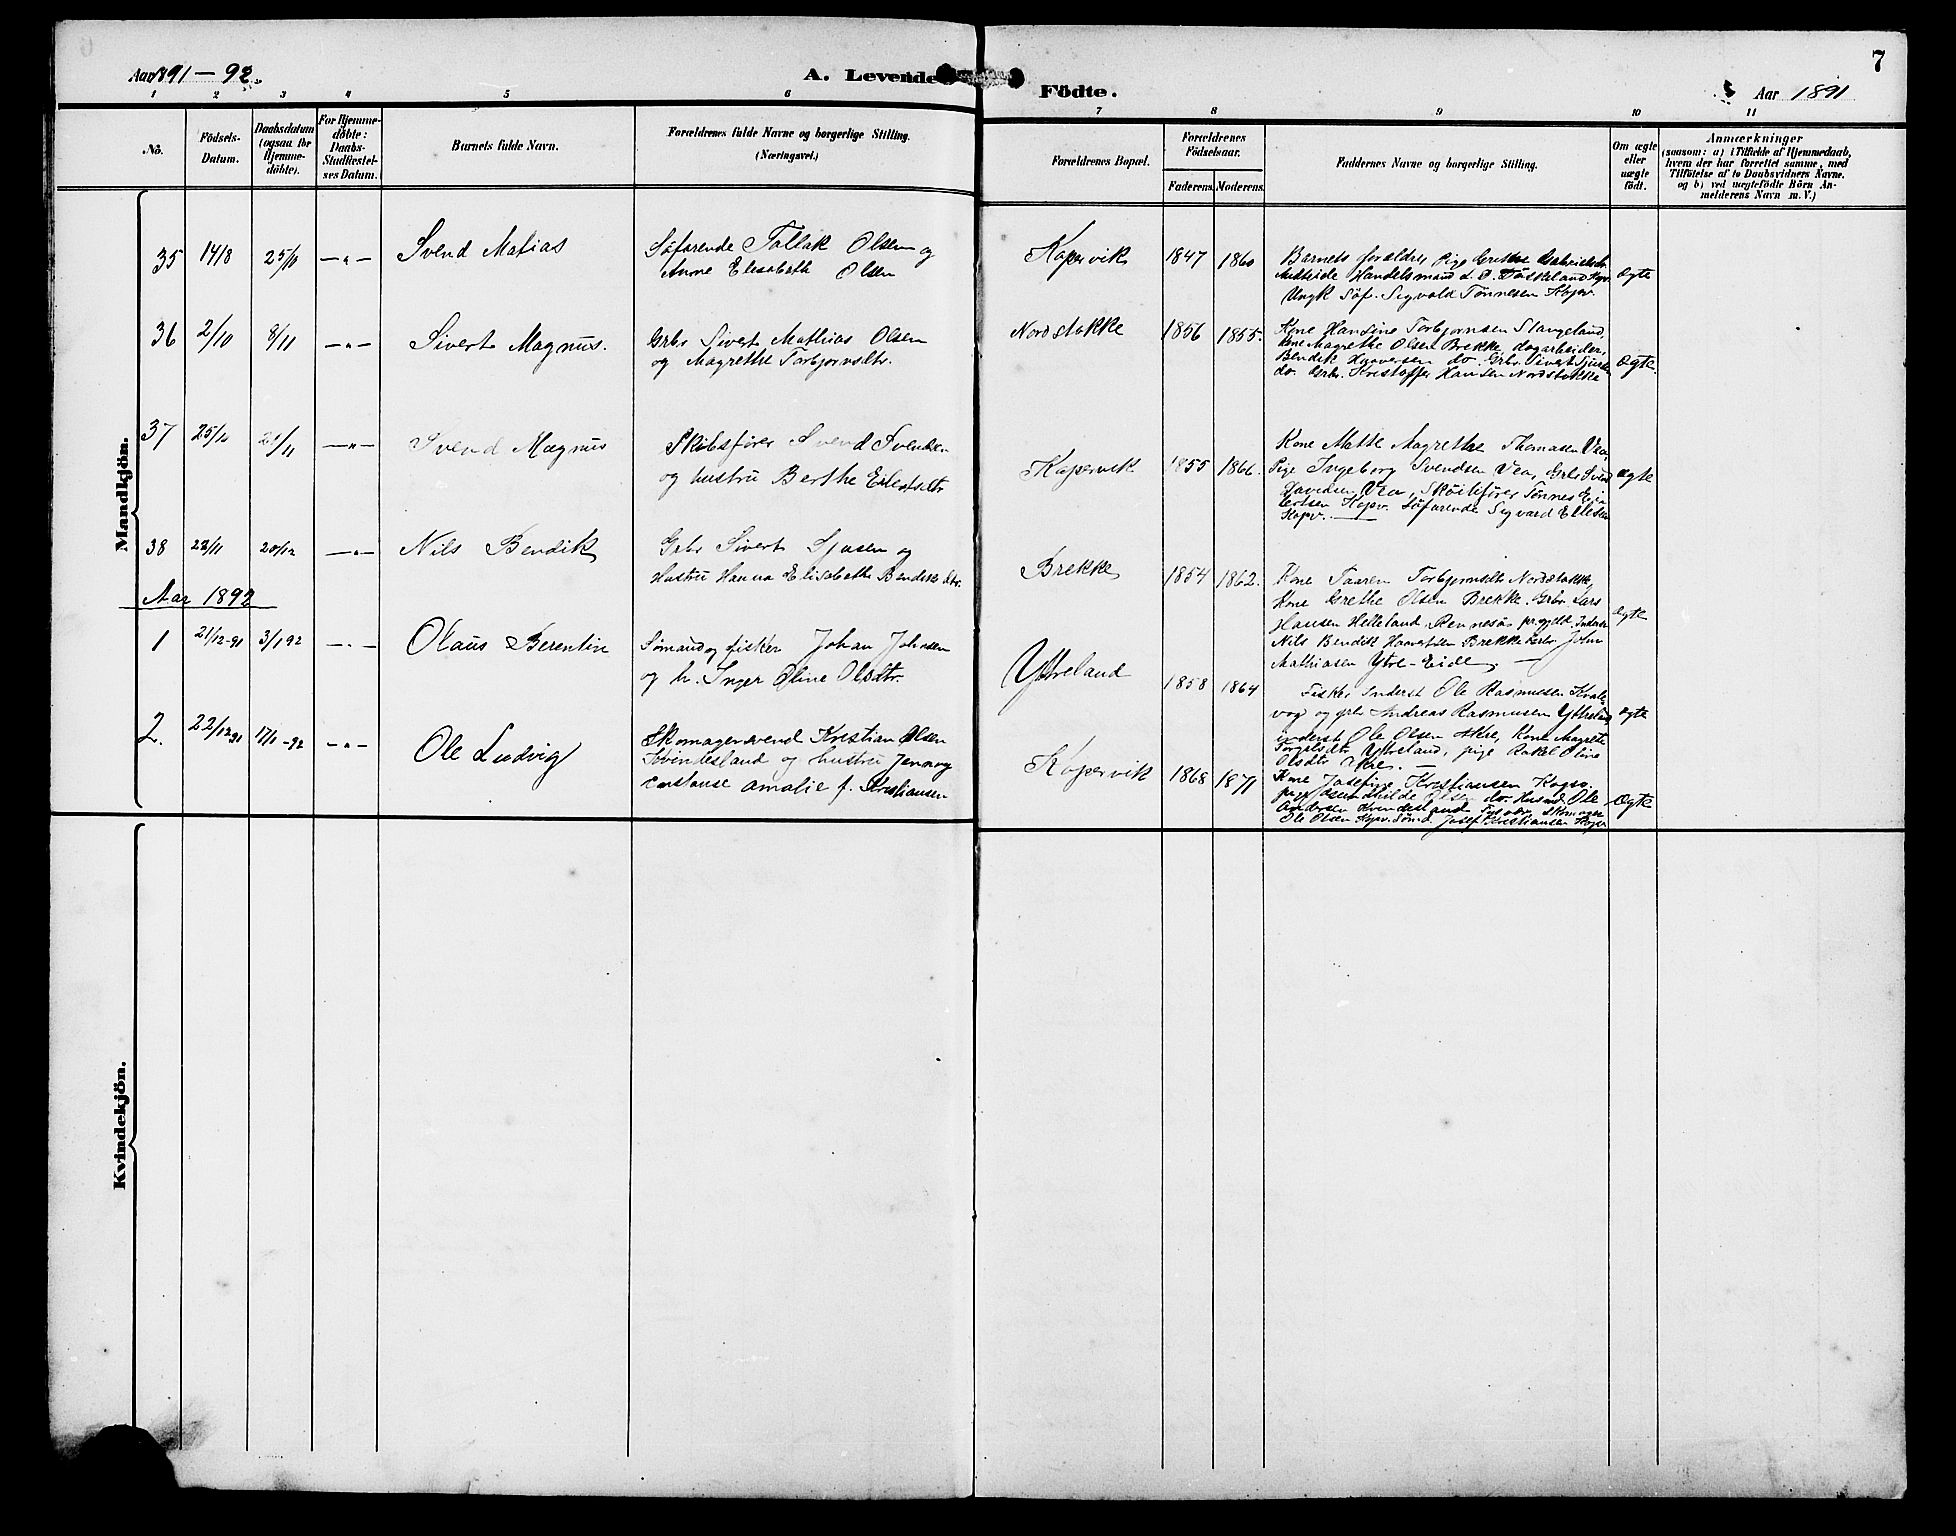 Aar 1891 – 92.
A. Levende
Födte.
Aar 1891
7
1 2 3 4 5 6 7 8 9 10 11
No.
Födsels-
Datum.
Daabsdatum
(ogsaa for
Hjemme-
döbte).
For Hjemme-
döbte:
Daabs-
Stadfæstel-
ses Datum.
Barnets fulde Navn.
Forældrenes fulde Navne og borgerlige Stilling.
(Næringsvei.)
Forældrenes Bopæl.
Forældrenes
Födselsaar.
Faderens. Moderens.
Faddernes Navne og borgerlige Stilling.
Om ægte
eller
uægte
födt.
Anmærkninger
(saasom: a) i Tilfælde af Hjemmedaab,
hvem der har forrettet samme, med
Tilföielse af to Daabsvidners Navne.
og b) ved uægtefödte Börn An-
melderens Navn m. V.)
Mandkjön.
35 14/8 25/10 — " — Svend Matias
Söfarende Tallak Olsen og
Anne Elisabeth Olsen
Kopervik 1847 1860
Barnets forældre Pige Grethe
Handelsmand
Ungk Söf. Sigvald Tönnesen Kopv.
ægte
36 2/10 8/11 — " — Sivert Magnus.
Grbr Sivert Mathias Olsen
og Magrethe Torbjørnsdtr.
Nordstokke 1856 1855.
Kone Hansine Torbjørnsen Stangeland,
Kone Magrethe Olsen Brekke, dagarbeider,
Bendik Haaversen do. Grbr. Sivert
do. Grbr. Kristoffer Hansen Nordstokke
ægte.
37 25/10 /11 — " — Svend Magnus
Skibsfører Svend Svendsen
og hustru Berthe Eilertsdtr
Kopervik 1855 1866.
Kone Mette Magrethe Thomasen Vea,
Pige Ingeborg Svendsen Vea, Grbr Svend
Davidsen Vea, Sköitefører Tönnes
Kopv. Söfarende Sigvard
Kopv. —
ægte
38 /11 20/12 — " — Nils Bendik
Grbr Sivert og
Hustru Hanna Elisabethe Bendiksdtr.
Brekke 1854 1862.
Kone Taaren Torbjørnsdtr Nordstokke,
Kone Grethe Olsen Brekke. Grbr. Lars
Hansen Helleland, Rennesø prgjeld. Inderst
Nils Bendik Haaversen Brekke John
Mathiasen Ytre-Eide. —
ægte
Aar 1892
1 21/12-91 3/1 92 — " — Olaus Berentin
Sömand og fisker Johan Johnsen
og h. Inger Oline Olsdtr.
Ytreland 1858 1864
Fisker Inderst Ole Rasmussen Kvale-
vog og grbr Andreas Rasmusen Ytreland,
inderst Ole Olsen Kone Magrete
Ytreland, pige Rakel Oline
Olsdtr —
ægte
2. 22/12 91 17/1-92 — " — Ole Ludvig
Skomagersvend Kristian Olsen
og hustru Jenny
Constanse Amalie f. Kristiansen
Kopervik 1868 1871
Kone Josefine Kristiansen Kopv.
pige Olsen do. Husmd. Ole
Andersen Skomager
Ole Olsen Kopv. Sömd. Josef Kristiansen Kopv
ægte
Kvindekjön.